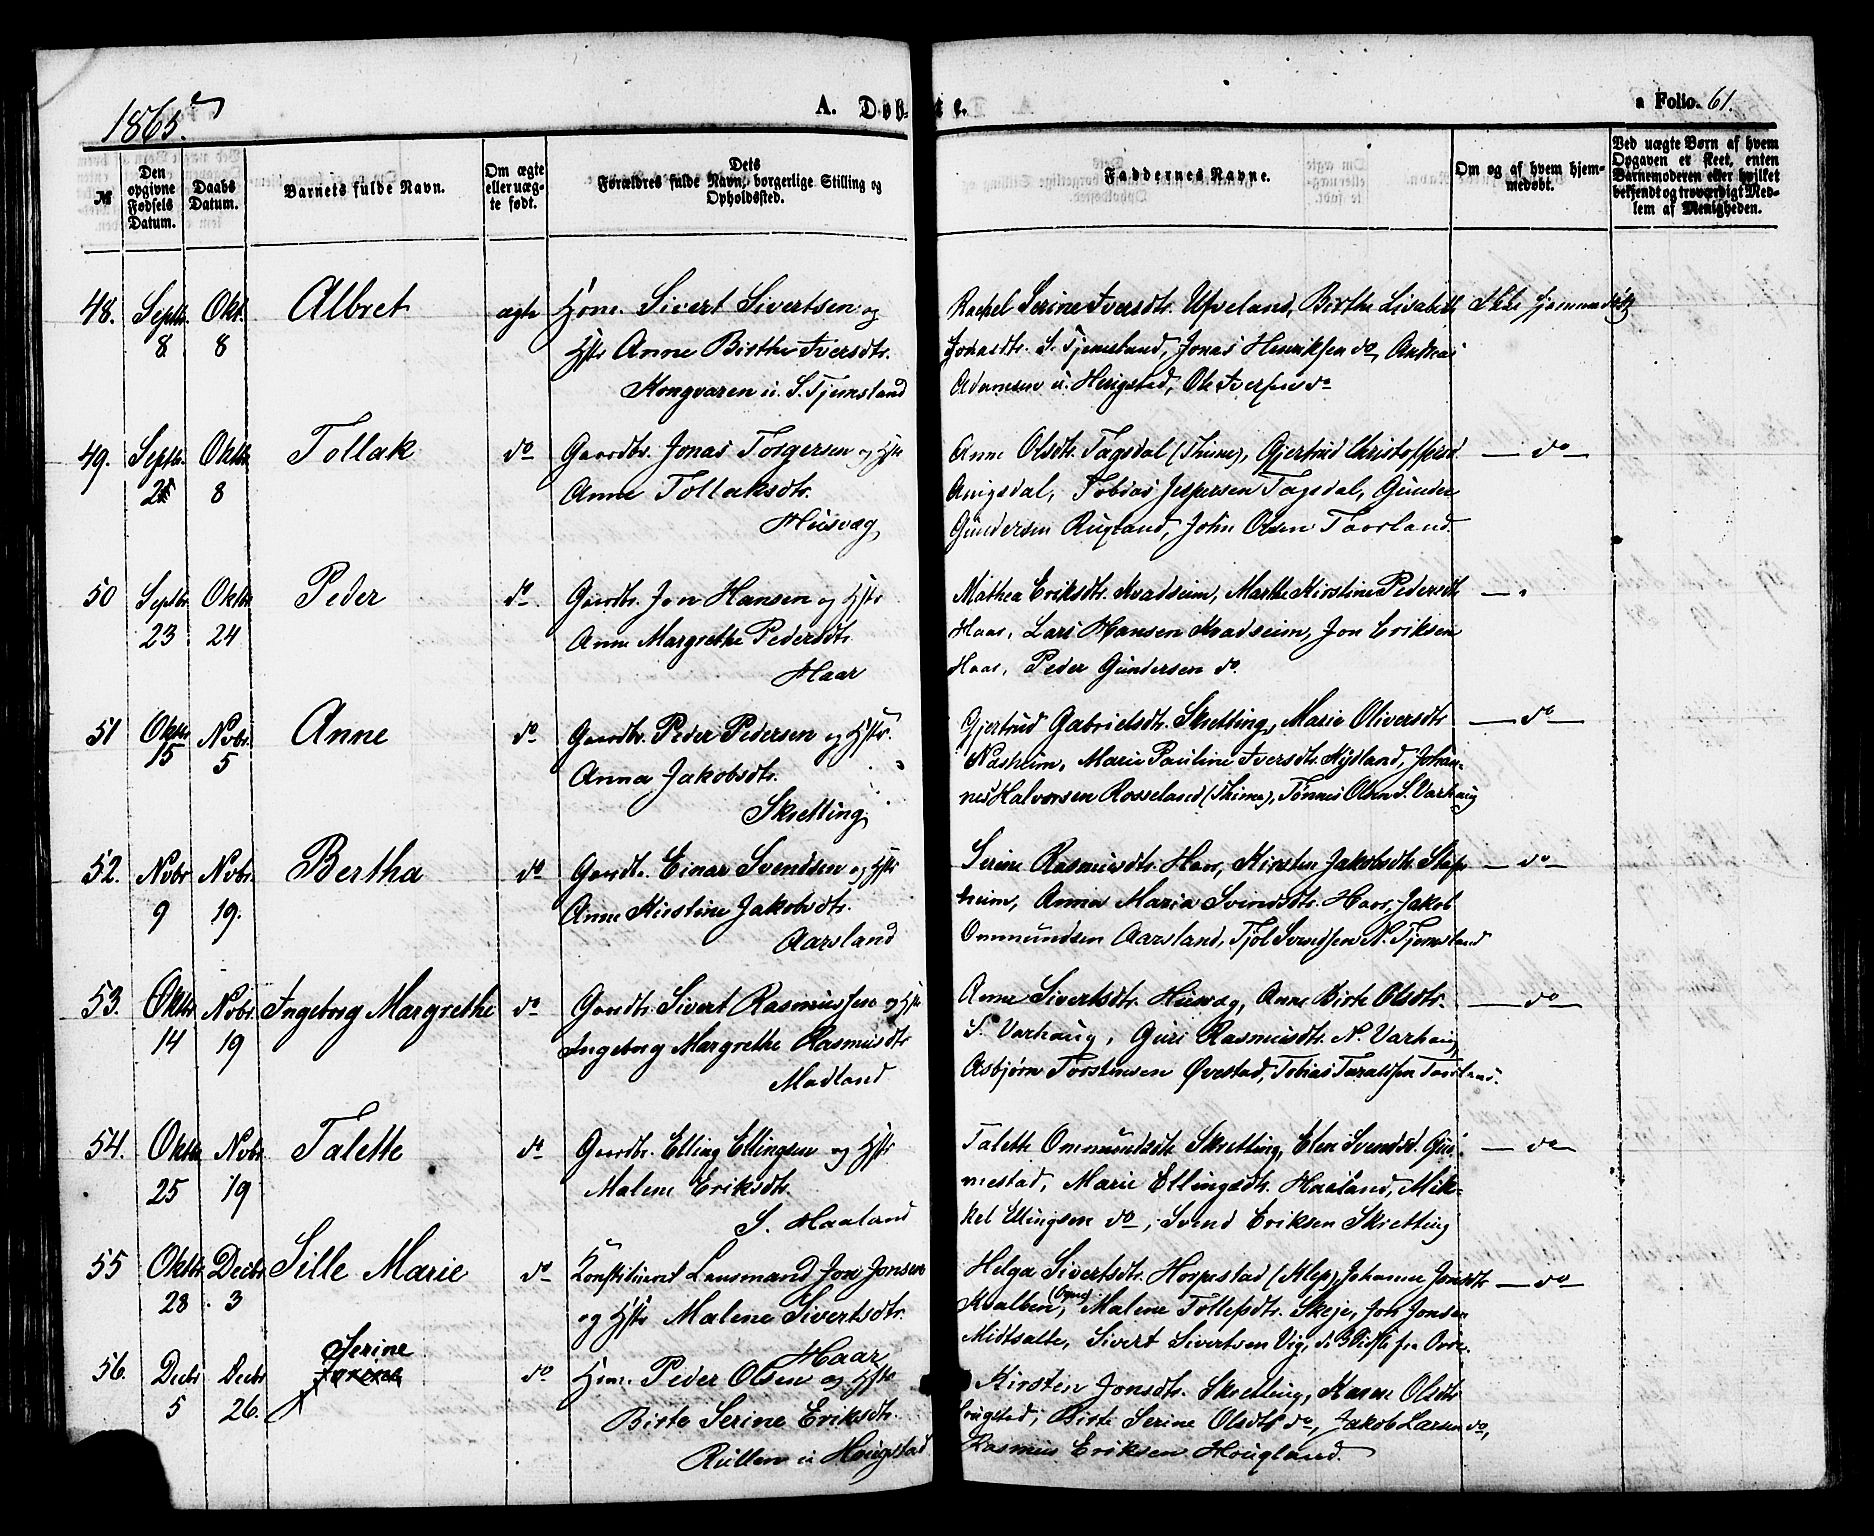 1865.
A. Døbte.
a Folio. 61.
№
Den opgivne Fødsels Datum.
Daabs Datum.
Barnets fulde Navn.
Om ægte eller uægte født.
Dets Forældres fulde Navn, borgerlige Stilling og Opholdssted.
Faddernes Navne.
Om og af hvem hjemmedøbt.
Ved uægte Børn af hvem Opgaven er skeet, enten Barnemoderen eller hvilket bekjendt og troværdigt Medlem af Menigheden.
48. Septbr. Okt. Albret ægte Hsm. Sivert Sivertsen og
8 8 Hstr Anne Birthe Iversdtr.
Kongvaren u. S. Tjemsland
Rachel Serine Iversdtr. Ueland, Birthe Lisabeth Ikke hjemmedøbt
Jonasdtr. S. Tjemsland, Jonas Henriksen do, Andreas
Adamsen u. Herigstad, Ole Iversen do
49. Septbr. Oktbr. Tollak do Gaardbr. Jonas Torgersen og Hstr
21 8 Anne Tollaksdtr.
Husvæg
Anne Olsdtr. Tagsdal (Thime), Gjertrud Christoffersd. — do —
Anigsdal, Tobias Jespersen Tagsdal, Gunder
Gundersen Rugland, John Olsen Taarland.
50 Septbr. Oktbr. Peder do Gaardbr. Jon Hansen og Hstr
23 24 Anne Margrethe Pedersdtr.
Haar
Mathea Eriksdtr. Kvadseim, Marthe Kirstine Pedersdtr —
Haar, Lars Hansen Kvadseim, Jon Eriksen
Haar, Peder Gundersen do
51 Oktbr. Novbr. Anne do Gaardbr. Peder Pedersen og Hstr.
15 5 Anna Jakobsdtr.
Skretting
Gjertrud Gabrielsdtr. Skretting, Marie Oliversdtr — do —
Næsheim, Marie Pauline Iversdtr. Nysland, Johan-
nes Halvorsen Rosseland (Thime), Tønnes Olsen S. Varhaug
52. Novbr Novbr. Bertha do Gaardbr. Einar Svendsen og Hstr
9 19. Anne Kirstine Jakobsdtr.
Aarsland
Serine Rasmusdtr. Haar, Kirsten Jakobsdtr. Stap- — do —
heim, Anna Maria Svendsdtr. Haar, Jakob
Ommundsen Aarsland, Tjøl Svendsen N. Tjemsland
53. Oktbr Novbr. Ingeborg Margrethe do Gaardbr. Sivert Rasmussen og Hstr
14 19 Ingeborg Margrethe Rasmusdtr
Madland
Anne Sivertsdtr. Husvæg, Anne Birte Olsdtr. — do —
S. Varhaug, Guri Rasmusdtr. N. Varhaug
Asbjørn Torstensen Øvestad, Tobias Taraldsen Taarland.
54. Oktbr Novbr. Talette do Gaardbr. Elling Ellingsen og Hstr
25 19 Malene Eriksdtr.
S. Haaland
Talette Ommundsdtr Skretting, Elen Svendsd. Gri- — do —
mestad, Marie Ellingsdtr. Haaland, Mik-
kel Ellingsen do, Svend Eriksen Skretting
55 Oktbr. Decbr Sille Marie do Konstitueret Lensmand Jon Jonsen
28 3 og Hstr Malene Sivertsdtr.
Haar
Helga Sivertsdtr. Horpestad (Klep), Johanne Jonsdtr — do —
Kvalben (Ogne), Malene Tollefsdtr. Skeje, Jon Jonsen
Midtsalte, Sivert Sivertsen Vig, de 3 Sidste fra Ogne.
56. Decbr Decbr Serine do Hsm. Peder Olsen og Hstr
5 26. Birte Serine Eriksdtr.
Rullen u Hougstad
Kirsten Jonsdtr. Skretting, Karen Olsdtr
Hougstad, Birte Serine Olsdtr do, Jakob Larsen do,
Rasmus Eriksen Hougland.